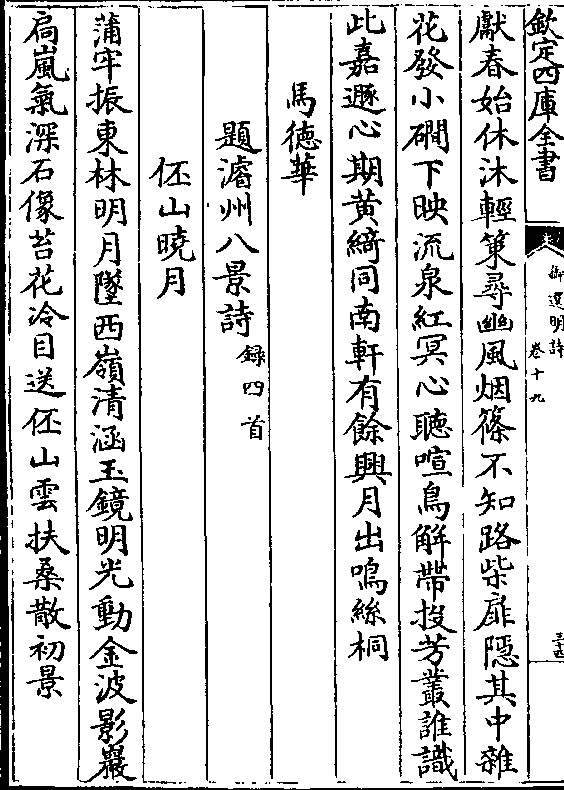 欽定四庫全書
御選明詩
卷十九
三十四
獻春始休沐輕策尋幽風烟篠不知路柴扉隱其中雜
花發小磵下映流泉紅冥心聽喧鳥解帶投芳叢誰識
此嘉遯心期黄綺同南軒有餘興月出鳴絲桐
馬德華
題濬州八景詩録四首
伾山曉月
蒲牢振東林明月墜西嶺清涵玉鏡明光動金波影巖
扃嵐氣深石像苔花冷目送伾山雲扶桑散初景